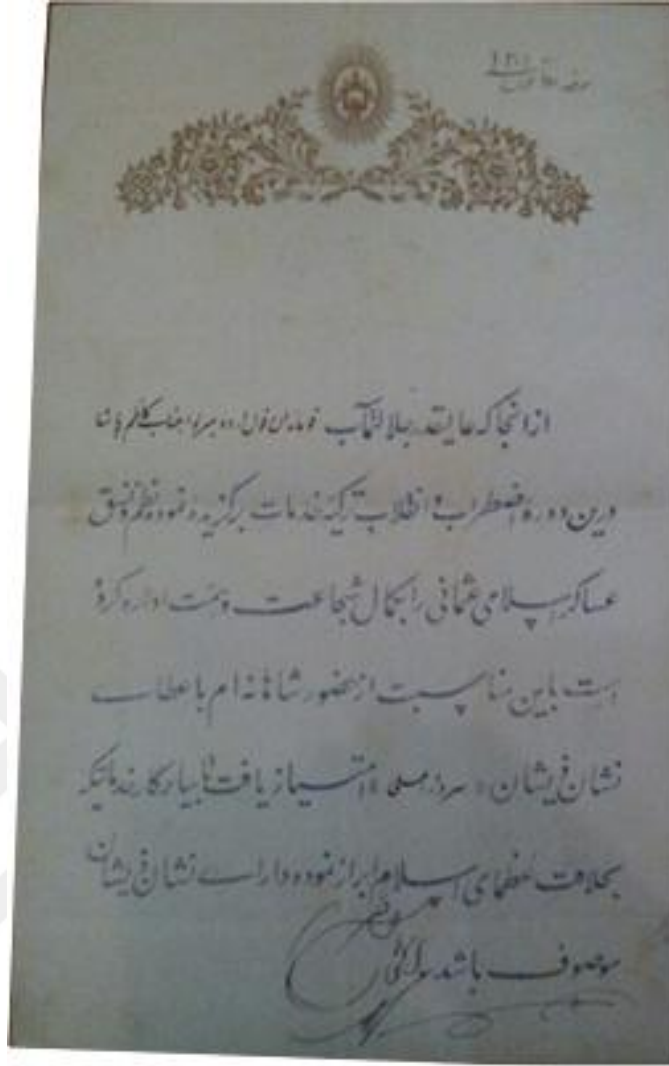 ۱۳۰۱
از انجا که عالیقدر جلالتمآب قوماندان قول اردو جناب کاظم پاشا
درین دوره اضطراب و انقلاب ترکیه خدمات برگزیده نموده نظم و نسق
عساکر اسلامی عثمانی را بکمال شجاعت و همت اداره کرده
است باین مناسبت از حضور شاهانه ام باعطای
نشان ذیشان سردار ملی امتیاز یافت تا بیادگار خدماتیکه
بخلافت عظمای اسلام ابراز نموده دارای نشان ذیشان
موصوف باشد